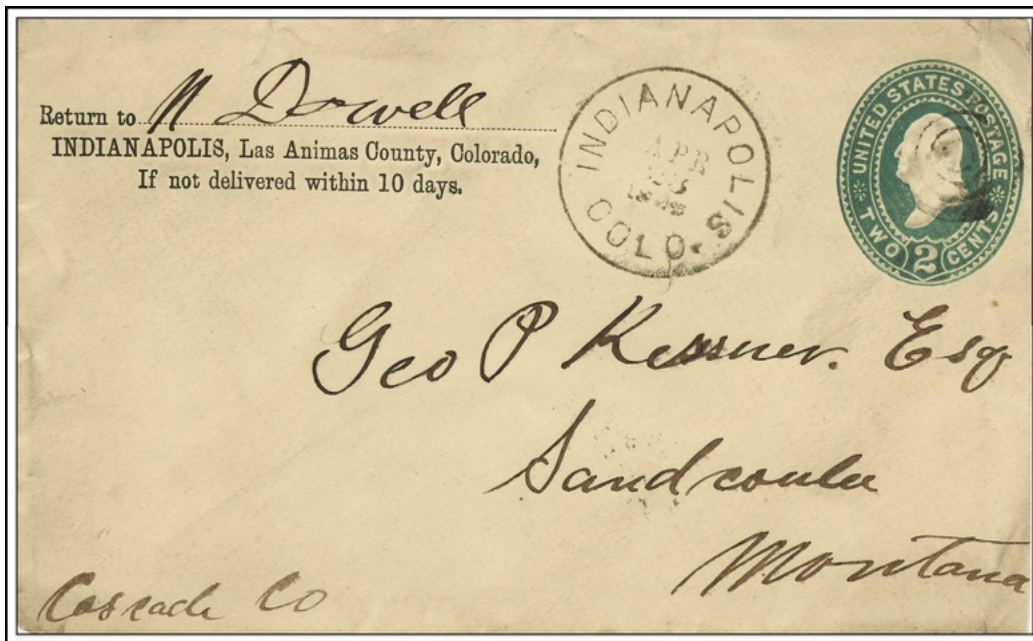 Return to N Dowell
INDIANAPOLIS, Las Animas County, Colorado,
If not delivered within 10 days.
INDIANAPOLIS
APR
COLO.
UNITED STATES POSTAGE
TWO 2 CENTS
Geo P Kessner. Esq
Sandcoulee
Montana
Cascade Co